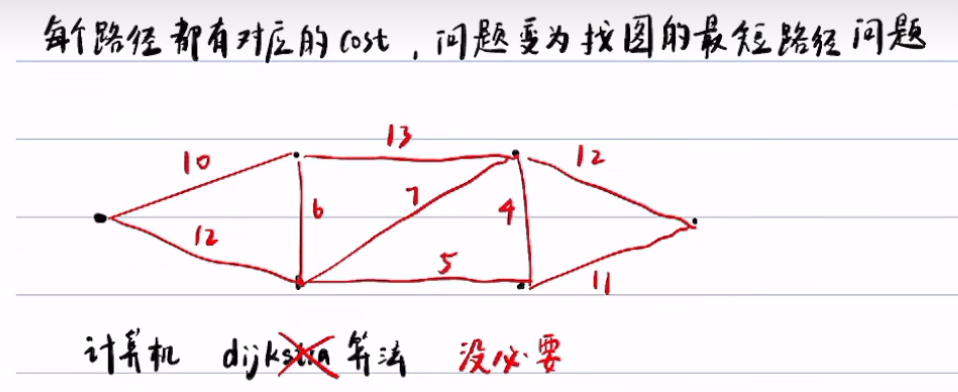 每个路径都有对应的cost，问题变为找图的最短路径问题
13
10
12
6
7
4
12
5
11
计算机 dijkstra 算法 没必要